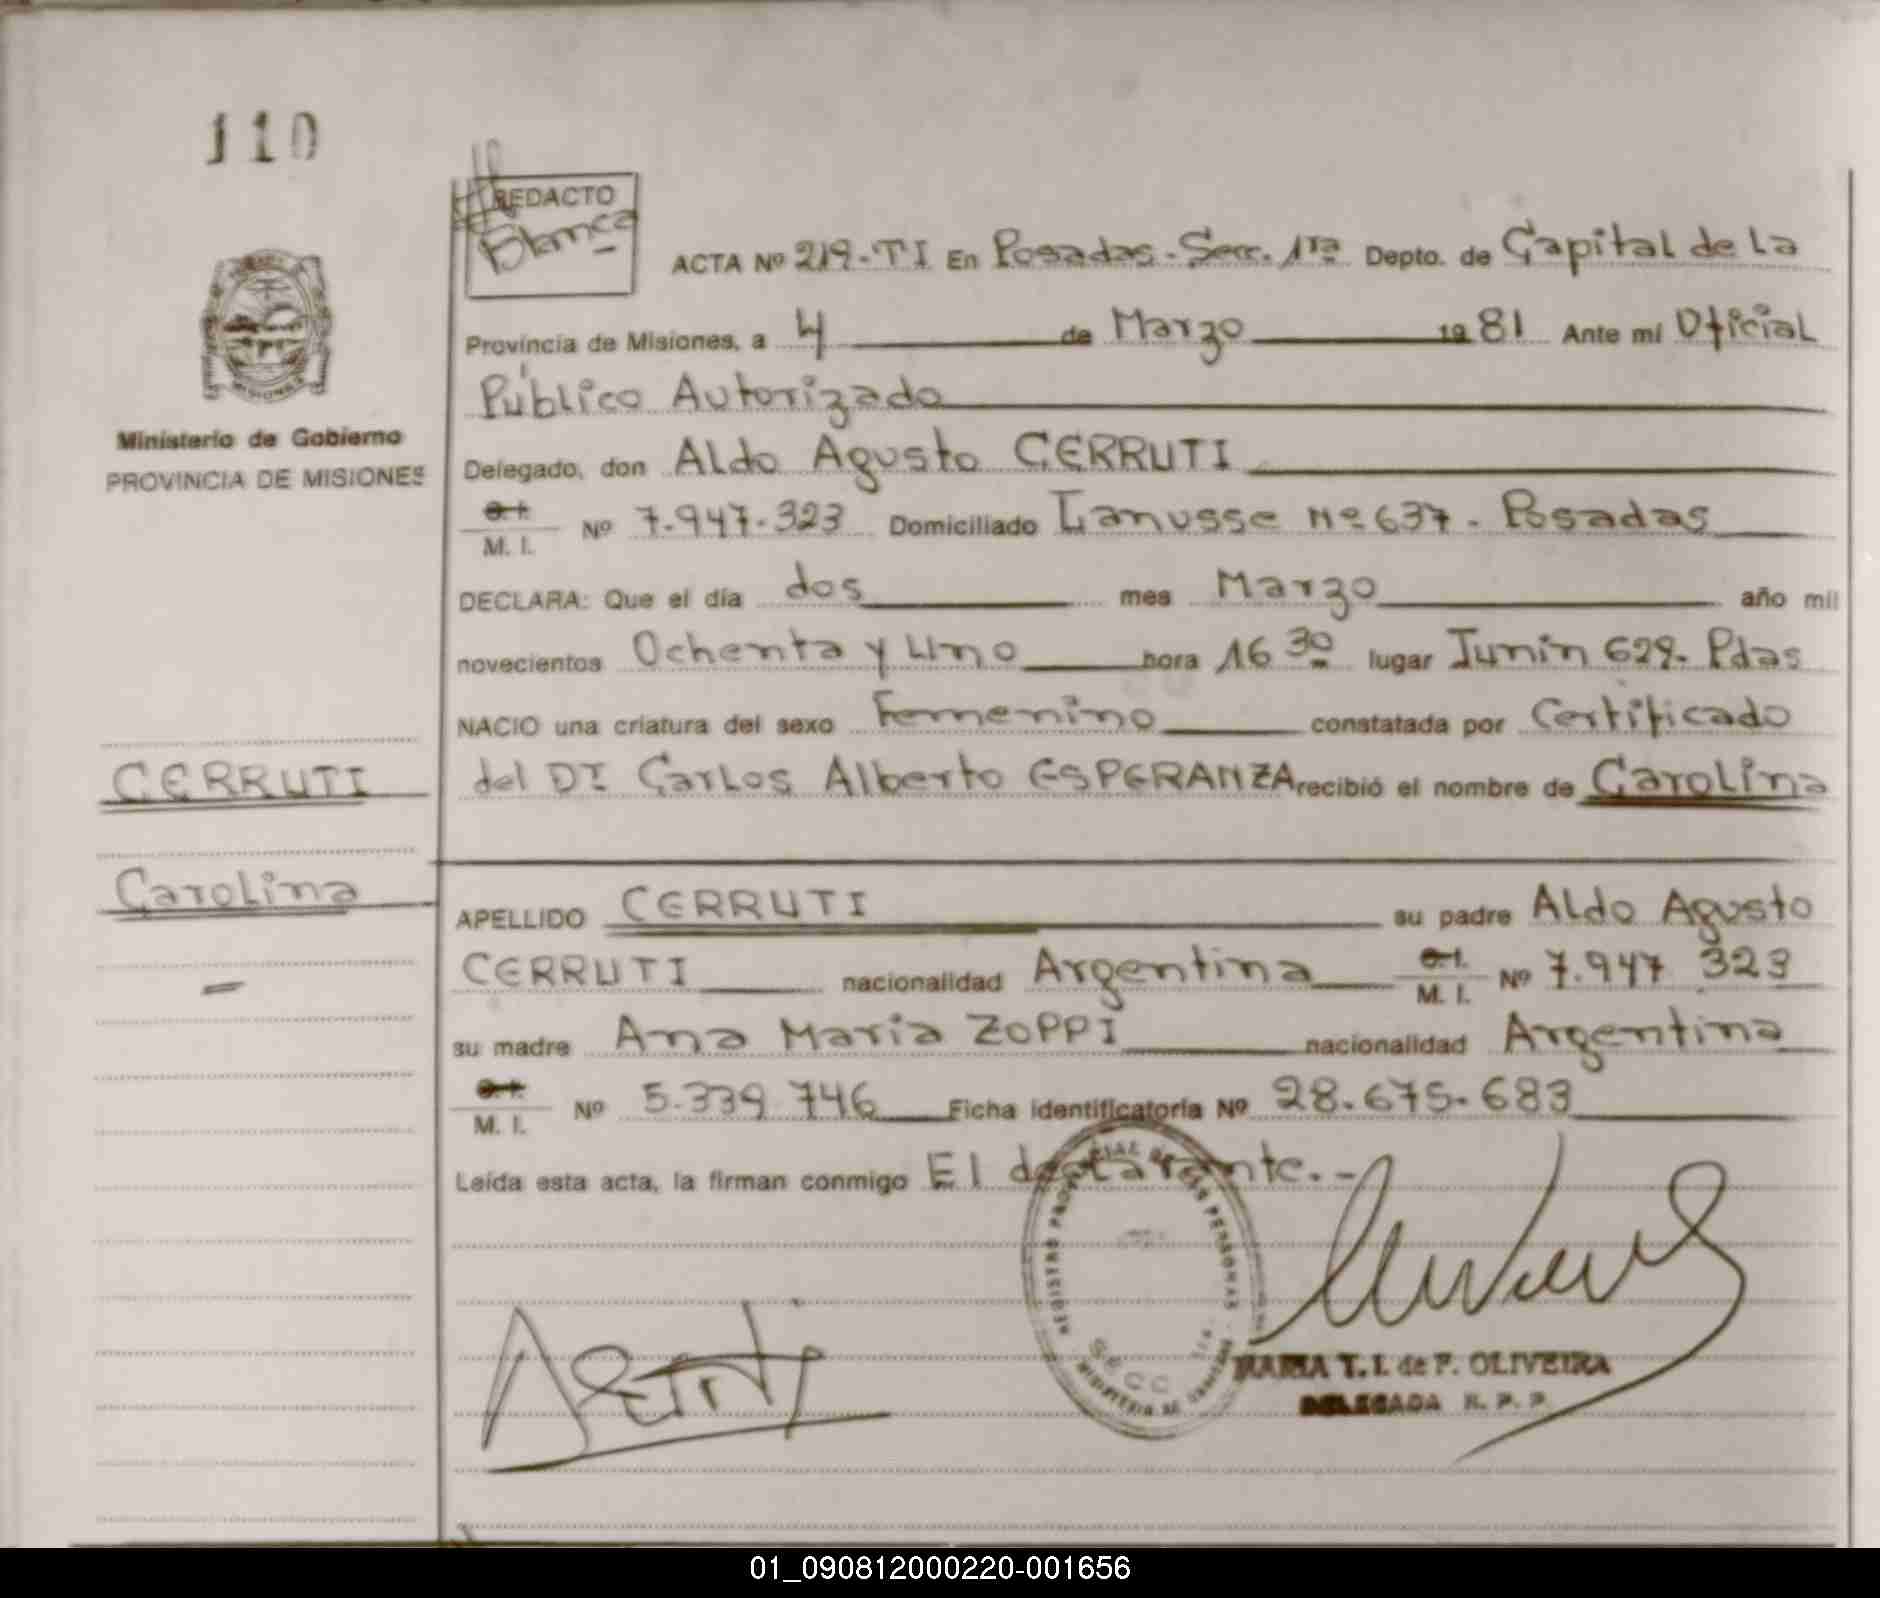 110
REDACTO
Blanca
ACTA Nº 219-TI En Posadas-Secc. 1ra Depto. de Capital de La
Provincia de Misiones, a 4 de Marzo 1981 Ante mi Oficial
Público Autorizado
Ministerio de Gobierno
PROVINCIA DE MISIONES
Delegado, don Aldo Agusto CERRUTI
C.I.
M. I. Nº 7.947.323 Domiciliado Lanusse Nº 637. Posadas
DECLARA: Que el día dos mes Marzo año mil
novecientos Ochenta y Uno hora 16 30 lugar Junin 629. Pdas
NACIO una criatura del sexo Femenino constatada por Certificado
del Dr Carlos Alberto ESPERANZA recibió el nombre de Carolina
CERRUTI
Carolina
APELLIDO CERRUTI su padre Aldo Agusto
CERRUTI nacionalidad Argentina C.I. M. I. Nº 7.947 323
su madre Ana Maria ZOPPI nacionalidad Argentina
C.I.
M. I. Nº 5.339.746 Ficha identificatoria Nº 28.675.683
Leída esta acta, la firman conmigo El declarante.-
REGISTRO PROVINCIAL DE LAS PERSONAS
SECC
MARIA T. I. de F. OLIVEIRA
DELEGADA R. P. P.
01_090812000220-001656